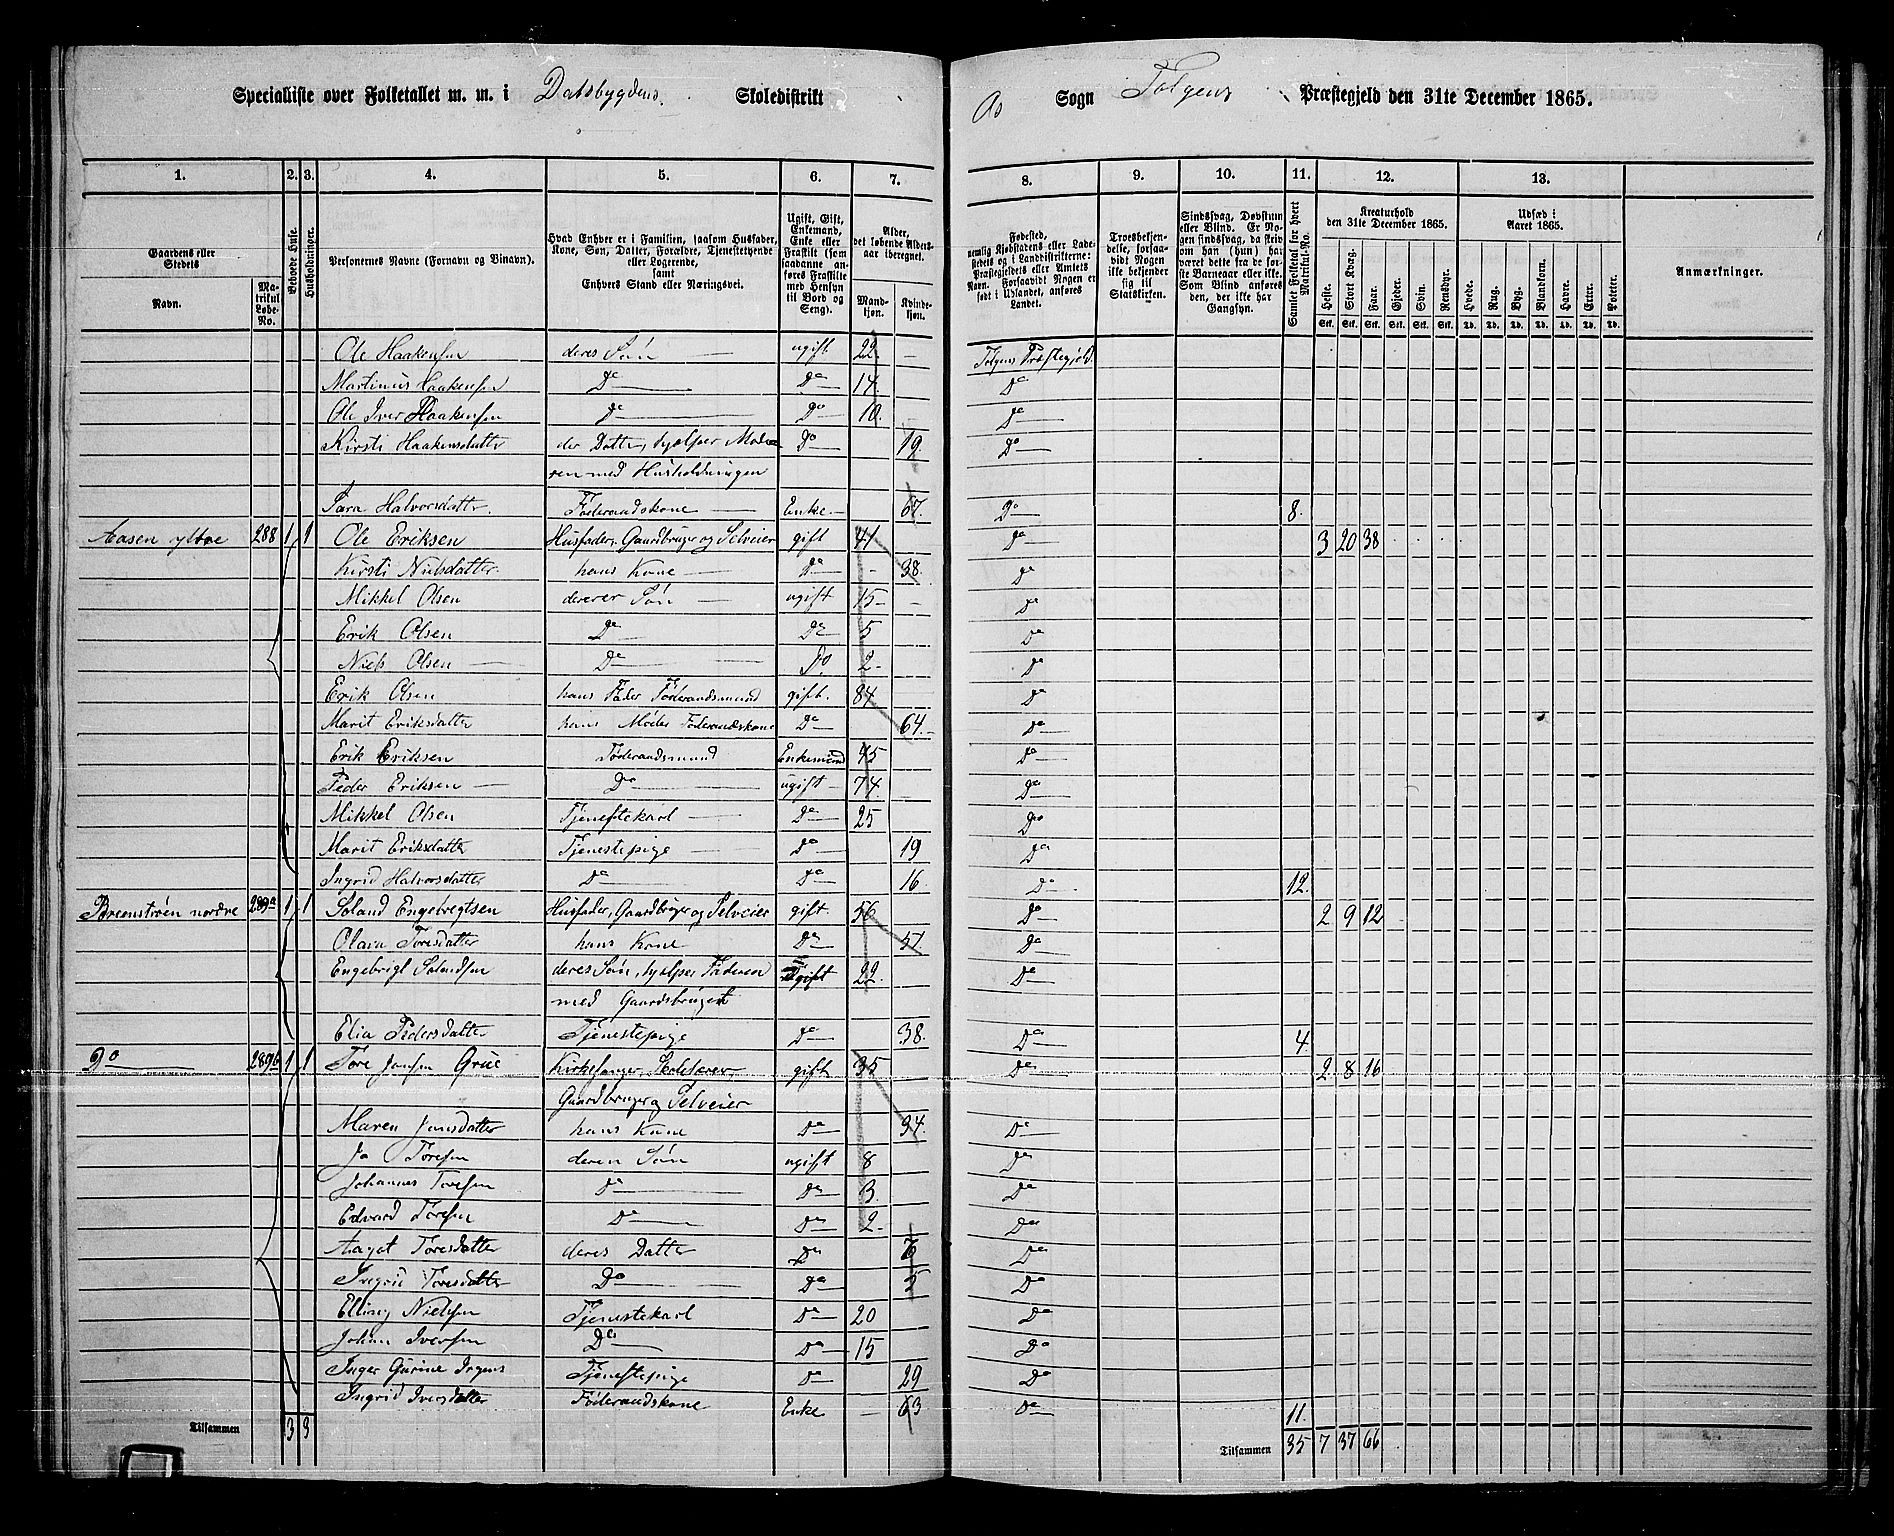 Specialliste over Folketallet m. m. i Dalsbygdens Skoledistrikt
Os Sogn Tolgens Præstegjeld den 31te December 1865.
1. 2. 3. 4. 5. 6. 7. 8. 9. 10. 11. 12. 13.
Gaardens eller Stedets
Navn.
Matrikul Løbe-No.
Beboede Huse.
Husholdninger.
Personernes Navne (Fornavn og Tilnavn).
Hvad Enhver er i Familien, saasom Husfader, Kone, Søn, Datter, Forældre, Tjenestetyende eller Logerende, samt Enhvers Stand eller Næringsvei.
Ugift, Gift, Enkemand, Enke eller Fraskilt (som saadanne anføres Fraskilte med Hensyn til Bord og Seng).
Alder, det løbende Aldersaar iberegnet.
Mandkjøn. Kvindekjøn.
Fødested, nemlig Kjøbstadens eller Ladestedets og i Landdistrikterne: Præstegjeldets eller Amtets Navn. Forsaavidt Nogen er født i Udlandet, anføres Landet.
Troesbekjendelse, forsaavidt Nogen ikke bekjender sig til Statskirken.
Sindssvag, Døvstum eller Blind. Er Nogen sindssvag, da skrives om han (hun) har været dette fra de første Barneaar eller ikke. Som Blind anføres den, der ikke har Gangsyn.
Samlet Folketal for hvert Matrikul-No.
Kreaturhold den 31te December 1865.
Heste. Stort Kvæg. Faar. Gjeder. Svin. Rensdyr.
Udsæd i Aaret 1865.
Hvede. Rug. Byg. Blandkorn. Havre. Erter. Poteter.
Anmærkninger.
Ole Haakensen deres Søn ugift 22 - Tolgens Præstegjeld.
Martinus Haakensen Do Do 14 Do
Ole Iver Haakensen Do Do 10 Do
Kirsti Haakensdatter der Datter, hjælper Mode- Do 19 Do
ren med Husholdningen
Halvorsdatter Føderaadskone Enke 67 Do 8.
Aasen yttre 288 1 1 Ole Eriksen Husfader, Gaardbruger og Selveier gift 41 Do 3 20 38
Kirsti Nielsdatter hans Kone Do - 38 Do
Mikkel Olsen derer Søn ugift 15 - Do
Erik Olsen Do Do 5 Do
Niels Olsen Do Do 2 Do
Erik Olsen hans Fader Føderaadsmand gift 84 Do
Marit Eriksdatter hans Moder Føderaadskone Do 64 Do
Erik Eriksen Føderaadsmand Enkemand 45 Do
Peder Eriksen Do ugift 74 Do
Mikkel Olsen Tjenestekarl Do 25 Do
Marit Eriksdatter Tjenestepige Do 19 Do
Ingrid Halvorsdatter Do Do 16 Do 12.
nordre 289a 1 1 Engebregtsen Husfader, Gaardbruger og Selveier gift 56 Do 2 9 12
Olava Toresdatter hans Kone Do 51 Do
Engebrigt deres Søn, hjelper Faderen ugift 22 Do
med Gaardsbruget
Elia Pedersdatter Tjenestepige Do 38 Do 4.
Do 289b 1 1 Tore Jonsen Grue Kirkesanger, Skolelærer, gift 35 Do 2 8 16
Gaardbruger og Selveier
Maren Jonsdatter hans Kone Do 34 Do
Jo Toresen deres Søn ugift 8 Do
Johannes Toresen Do Do 3 Do
Edvard Toresen Do Do 2 Do
Aagot Toresdatter deres Datter Do Do
Ingrid Toresdatter Do Do 5 Do
Elling Nielsen Tjenestekarl Do 20 Do
Johan Iversen Do Do 15 Do
Inger Gurine Irgens Tjenestepige Do 29 Do
Ingrid Iversdatter Føderaadskone Enke - 63 Do 11.
Tilsammen 3 3
Tilsammen 35 7 37 66